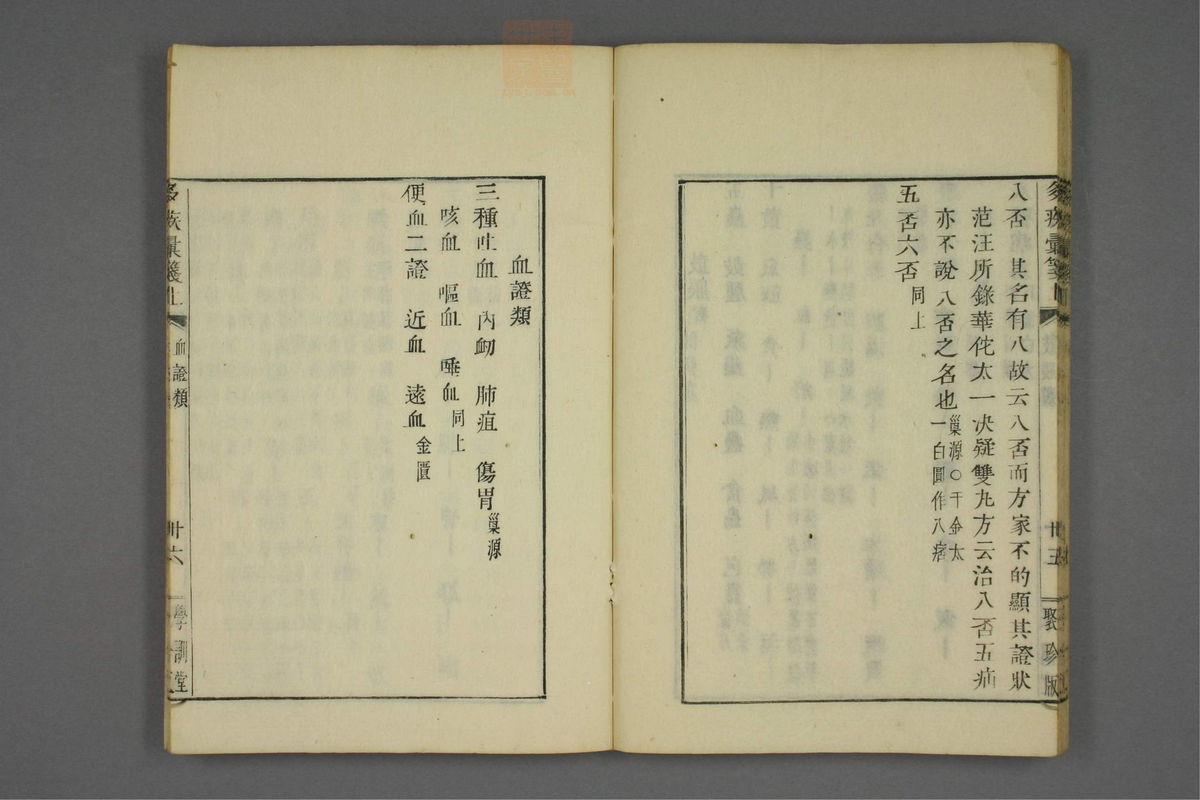 八否 其名有八故云八否而方家不的顯其證狀
范汪所錄華佗太一决疑雙丸方云治八否五疝
亦不說八否之名也巢源○千金太
一白圓作八痞
五否六否同上
多疾彙箋上
廿五
聚珍版
血證類
三種吐血 內衂 肺疽 傷胃巢源
咳血 嘔血 唾血同上
便血二證 近血 遠血金匱
多疾彙箋上
血證類
卅六
學訓堂